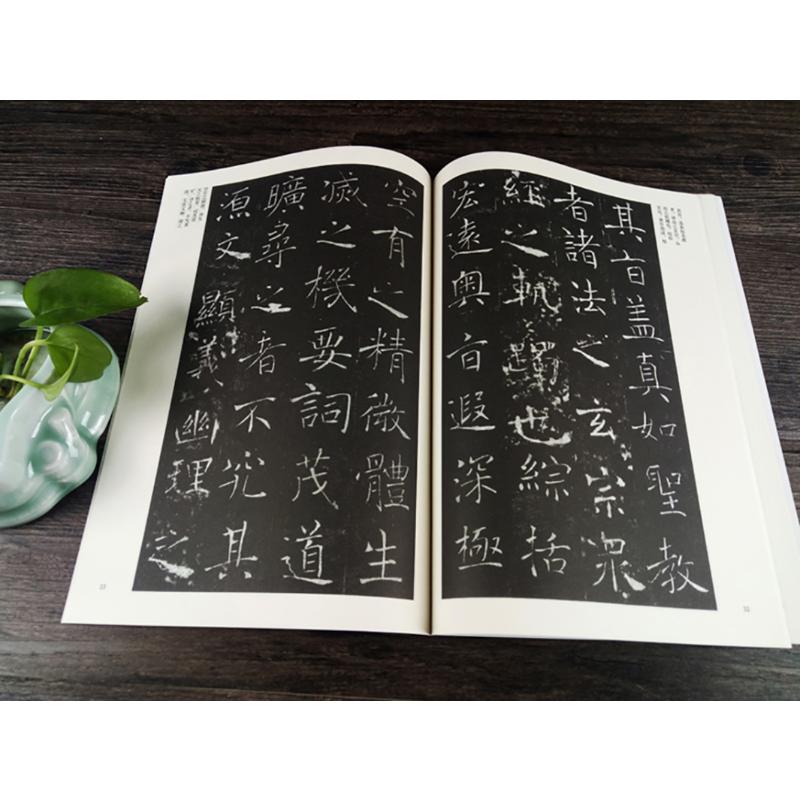 其旨盖真如聖教
者諸法之玄宗衆
經之軌躅也綜括
宏遠奥旨遐深極
空有之精微體生
滅之機要詞茂道
曠尋之者不究其
源文顯義幽理之